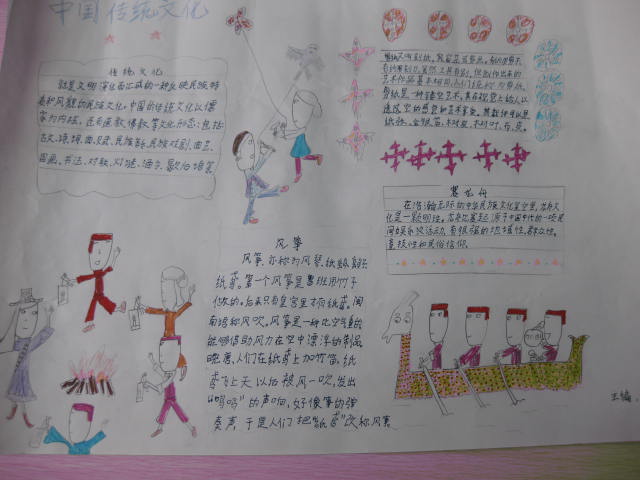 中国传统文化
传统文化
就是文明演化而汇成的一种反映民族特
质和风貌的民族文化。中国的传统文化以儒
家为内核,还有道教、佛教等文化形态:包括
古文、诗、词、曲、赋、民族音乐、民族戏剧、曲艺、
国画、书法、对联、灯谜、酒令、歇后语等
剪纸又叫刻纸,
剪纸是一种镂空艺术,其在视觉上给人以
透空的感觉和艺术享受。其载体可以是
纸张、金银箔、树皮、树叶、布、皮、
赛龙舟
在浩瀚无际的中华民族文化星空里,龙舟文
化是一颗明珠。龙舟比赛起源于中国古代的一项民
间娱乐竞技活动,有很强的地域性,群众性、
竞技性和民俗信仰。
风筝
风筝,亦称为风琴,纸鹞,鹞子
纸鸢。第一个风筝是鲁班用竹子
做的,后来只有皇宫里才有纸鸢。闽
南语称风吹。风筝是一种比空气重的
能够借助风力在空中漂浮的制品
晚唐,人们在纸鸢上加竹笛,纸
鸢飞上天以后被风一吹,发出
“呜呜”的声响,好像筝的弹
奏声,于是人们把“纸鸢”改称风筝
主编